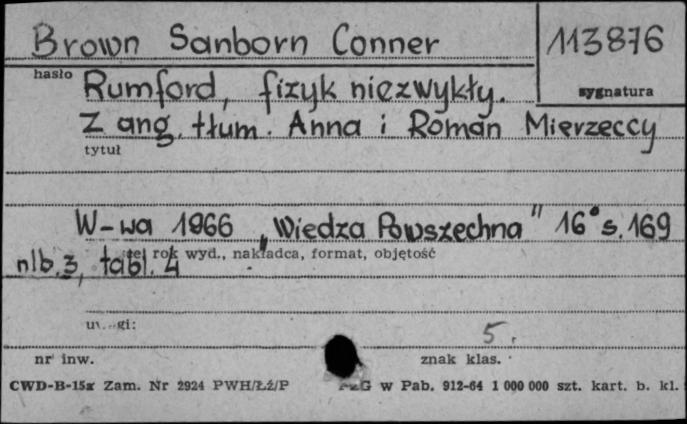 Brown Sanborn Conner
113876
hasło
sygnatura
Rumford, fizyk niezwykły.
Z ang. tłum. Anna i Roman Mierzeccy
tytuł
W-wa 1966 „Wiedza Powszechna" 16° s. 169
rok wyd., nakładca, format, objętość
nlb. 3, tabl. 4
uwagi:
5.
nr inw.
znak klas.
CWD-B-15x Zam. Nr 2924 PWH/Łź/P
PZG w Pab. 912-64 1 000 000 szt. kart. b. kl.